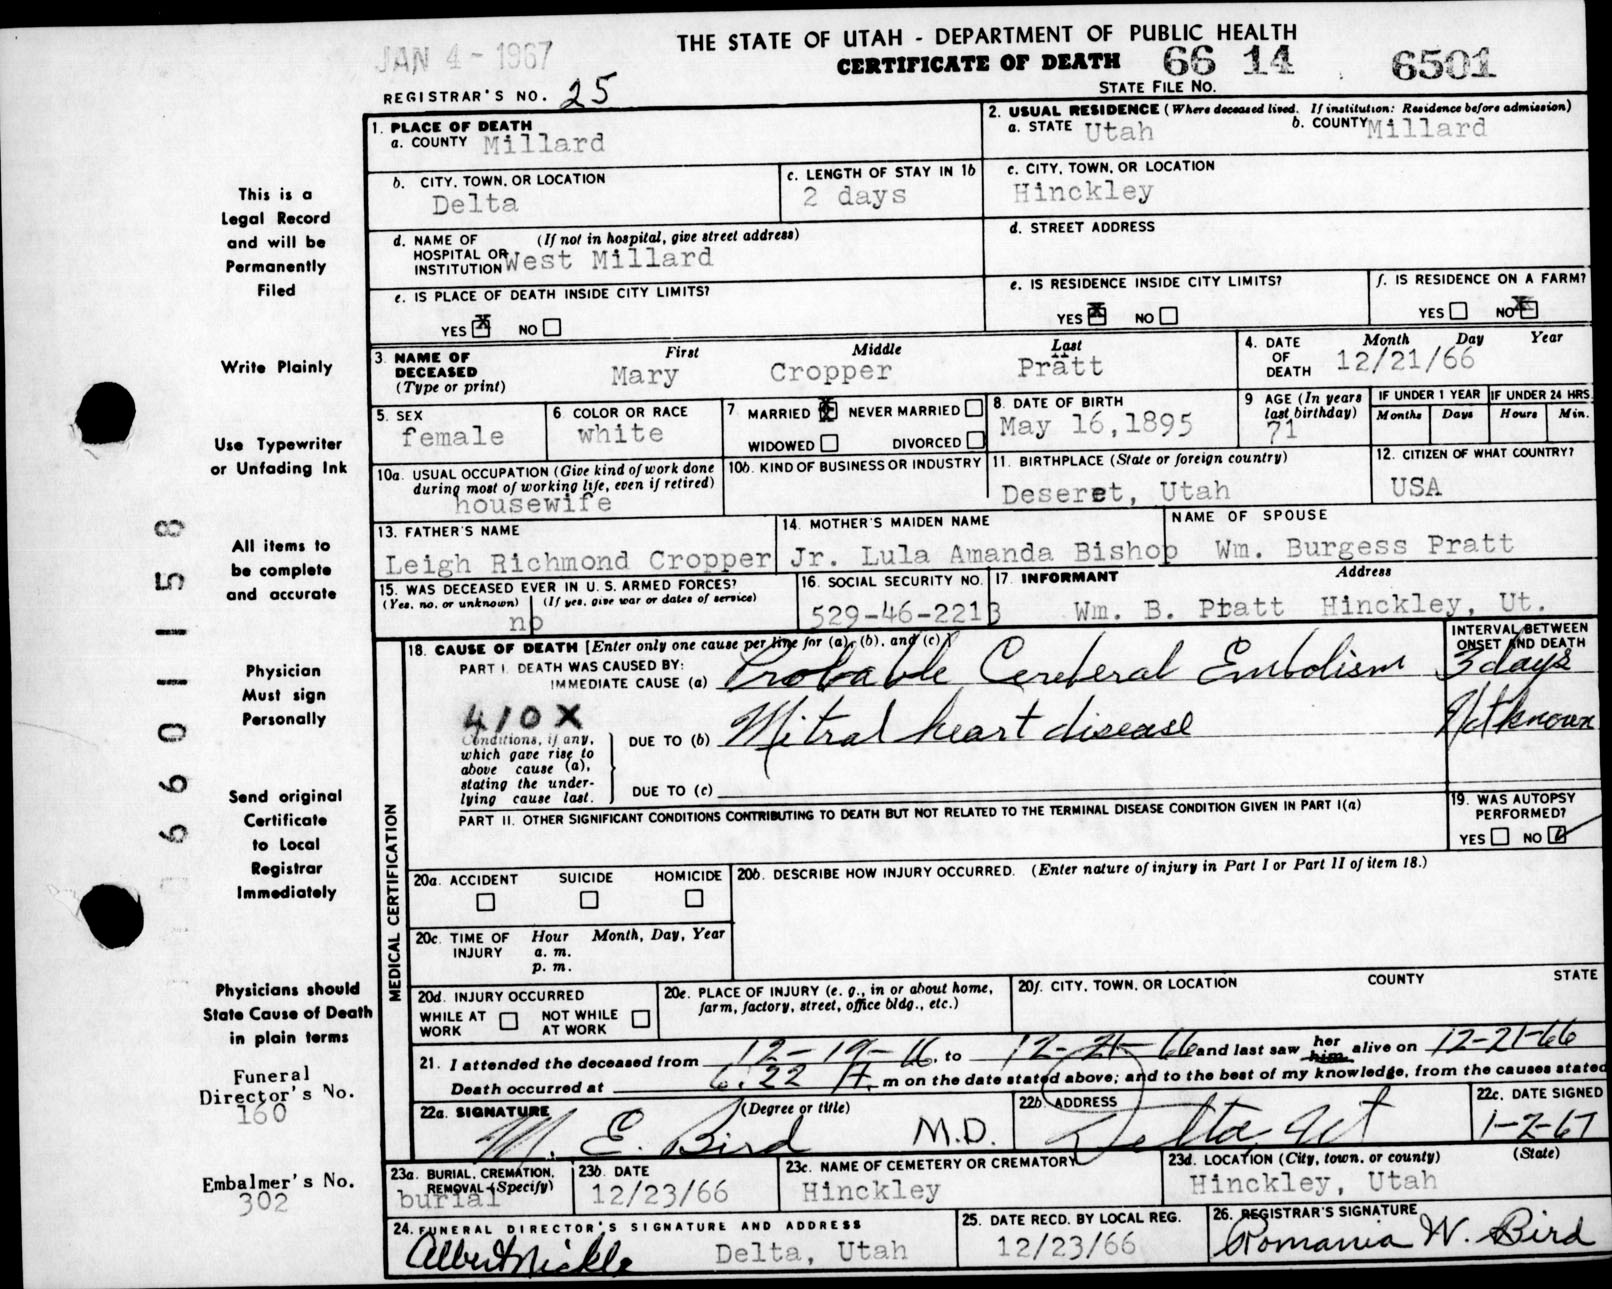 JAN 4 - 1967
THE STATE OF UTAH - DEPARTMENT OF PUBLIC HEALTH
CERTIFICATE OF DEATH 66 14 6501
STATE FILE NO.
REGISTRAR'S NO. 25
1. PLACE OF DEATH
a. COUNTY Millard
2. USUAL RESIDENCE (Where deceased lived. If institution: Residence before admission)
a. STATE Utah b. COUNTY Millard
b. CITY, TOWN, OR LOCATION
Delta
c. LENGTH OF STAY IN 1b
2 days
c. CITY, TOWN, OR LOCATION
Hinckley
d. NAME OF HOSPITAL OR INSTITUTION (If not in hospital, give street address)
West Millard
d. STREET ADDRESS
e. IS PLACE OF DEATH INSIDE CITY LIMITS?
YES X NO
e. IS RESIDENCE INSIDE CITY LIMITS?
YES X NO
f. IS RESIDENCE ON A FARM?
YES NO X
3. NAME OF DECEASED (Type or print)
First Middle Last
Mary Cropper Pratt
4. DATE OF DEATH Month Day Year
12/21/66
5. SEX
female
6. COLOR OR RACE
white
7. MARRIED X NEVER MARRIED
WIDOWED DIVORCED
8. DATE OF BIRTH
May 16, 1895
9. AGE (In years last birthday)
71
IF UNDER 1 YEAR
Months Days
IF UNDER 24 HRS.
Hours Min.
10a. USUAL OCCUPATION (Give kind of work done during most of working life, even if retired)
housewife
10b. KIND OF BUSINESS OR INDUSTRY
11. BIRTHPLACE (State or foreign country)
Deseret, Utah
12. CITIZEN OF WHAT COUNTRY?
USA
13. FATHER'S NAME
Leigh Richmond Cropper Jr.
14. MOTHER'S MAIDEN NAME
Lula Amanda Bishop
NAME OF SPOUSE
Wm. Burgess Pratt
15. WAS DECEASED EVER IN U. S. ARMED FORCES?
(Yes, no, or unknown) (If yes, give war or dates of service)
no
16. SOCIAL SECURITY NO.
529-46-2213
17. INFORMANT Address
Wm. B. Pratt Hinckley, Ut.
MEDICAL CERTIFICATION
18. CAUSE OF DEATH [Enter only one cause per line for (a), (b), and (c)]
INTERVAL BETWEEN ONSET AND DEATH
PART I. DEATH WAS CAUSED BY:
IMMEDIATE CAUSE (a) Probable Cerebral Embolism 3 days
410X
Conditions, if any, which gave rise to above cause (a), stating the underlying cause last.
DUE TO (b) Mitral heart disease Not known
DUE TO (c)
PART II. OTHER SIGNIFICANT CONDITIONS CONTRIBUTING TO DEATH BUT NOT RELATED TO THE TERMINAL DISEASE CONDITION GIVEN IN PART I(a)
19. WAS AUTOPSY PERFORMED?
YES NO
20a. ACCIDENT SUICIDE HOMICIDE
20b. DESCRIBE HOW INJURY OCCURRED. (Enter nature of injury in Part I or Part II of item 18.)
20c. TIME OF INJURY Hour Month, Day, Year
a. m.
p. m.
20d. INJURY OCCURRED
WHILE AT WORK NOT WHILE AT WORK
20e. PLACE OF INJURY (e. g., in or about home, farm, factory, street, office bldg., etc.)
20f. CITY, TOWN, OR LOCATION COUNTY STATE
21. I attended the deceased from 12-19-66, to 12-21-66 and last saw her him alive on 12-21-66
Death occurred at 6:22 A. m on the date stated above; and to the best of my knowledge, from the causes stated
22a. SIGNATURE (Degree or title)
M. E. Bird M.D.
22b. ADDRESS
Delta, Ut
22c. DATE SIGNED
1-2-67
23a. BURIAL, CREMATION, REMOVAL (Specify)
burial
23b. DATE
12/23/66
23c. NAME OF CEMETERY OR CREMATORY
Hinckley
23d. LOCATION (City, town, or county) (State)
Hinckley, Utah
24. FUNERAL DIRECTOR'S SIGNATURE AND ADDRESS
Albert Nickle Delta, Utah
25. DATE RECD. BY LOCAL REG.
12/23/66
26. REGISTRAR'S SIGNATURE
Romania W. Bird
This is a
Legal Record
and will be
Permanently
Filed
Write Plainly
Use Typewriter
or Unfading Ink
All items to
be complete
and accurate
Physician
Must sign
Personally
Send original
Certificate
to Local
Registrar
Immediately
Physicians should
State Cause of Death
in plain terms
Funeral
Director's No.
160
Embalmer's No.
302
06601158